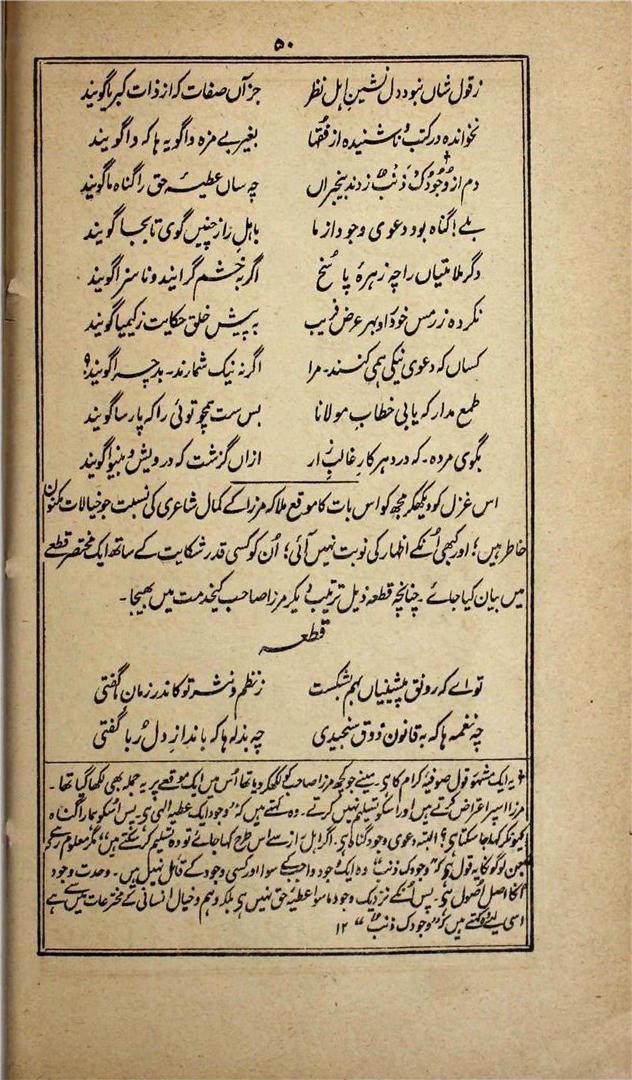 ۵۰
ز قول شاں نبود دل نشینِ اہلِ نظر جز آں صفات کہ از ذات کبریا گویند
نخواندہ در کتب و ناشنیدہ از فقہا بغیر بے مزہ واگویہ ہا کہ واگویند
دم از وُجُودُکَ ذَنْبٌ زدند بیخبراں چہ ساں عطیۂ حق را گناہ ما گویند
بلے! گناہ بود دعویِ وجود از ما باہلِ راز چنیں گوی تا بجا گویند
دگر ملامتیاں را چہ زہرۂ پاسُخ اگر بخشم گرایند و ناسزا گویند
نکردہ زر مس خود را و بہر عرض فریب بہ پیش خلق حکایت ز کیمیا گویند
کساں کہ دعویِ نیکی ہمی کنند۔ مرا اگر نہ نیک شمارند۔ بد چرا گویند؟
طمع مدار کہ یابی خطاب مولانا بس ست ہمچو توئی را کہ پارسا گویند
بگوی مردہ۔ کہ در دہر کار غالبِ زار ازاں گزشت کہ درویش و بینوا گویند
اس غزل کو دیکھکر مجھکو اس بات کا موقع ملا کہ مرزا کے کمال شاعری کی نسبت جو خیالات مکنون
خاطر ہیں؛ اور کبھی اُنکے اظہار کی نوبت نہیں آئی؛ اُن کو کسی قدر شکایت کے ساتھ ایک مختصر قطعے
میں بیان کیا جائے۔ چنانچہ قطعہ ذیل ترتیب دیکر مرزا صاحب کیخدمت میں بھیجا۔
قطعہ
تو اے کہ رونق پیشینیاں بہم شکست ز نظم و نثر تو کاندر زماں گفتی
چہ نغمہ ہا کہ بہ قانون ذوق سنجیدی چہ بذلہ ہا کہ بانداز دل رُبا گفتی
یہ ایک مشہور قول صوفیۂ کرام کا ہی۔ مینے جو کچھ مرزا صاحب کو لکھکر دیا تھا اُس میں ایک موقعے پر یہ جملہ بھی لکھا گیا تھا۔
مرزا اسپر اعتراض کرتے ہیں اور اسکو تسلیم نہیں کرتے۔ وہ کہتے ہیں کہ "وجود ایک عطیہ الٰہی ہی۔ پس اُسکو ہمارا گناہ
کیونکر کہا جا سکتا ہی؟ البتہ دعویِ وجود گناہ ہی۔ اگر اہلِ راز سے اس طرح کہا جائے تو وہ تسلیم کر سکتے ہیں" مگر معلوم رہے کہ
جن لوگوں کا یہ قول ہی کہ "وجودک ذنب" وہ ایک وجود واجب کے سوا اور کسی وجود کے قائل نہیں ہیں۔ وحدت وجود
اُنکا اصلِ اُصول ہی۔ پس اُنکے نزدیک وجود ماسوا عطیۂ حق نہیں ہی بلکہ وہم و خیال انسانی کے مخترعات میں سے ہے
اسی لیئے وہ کہتے ہیں کہ "وجودک ذنب" ۱۲